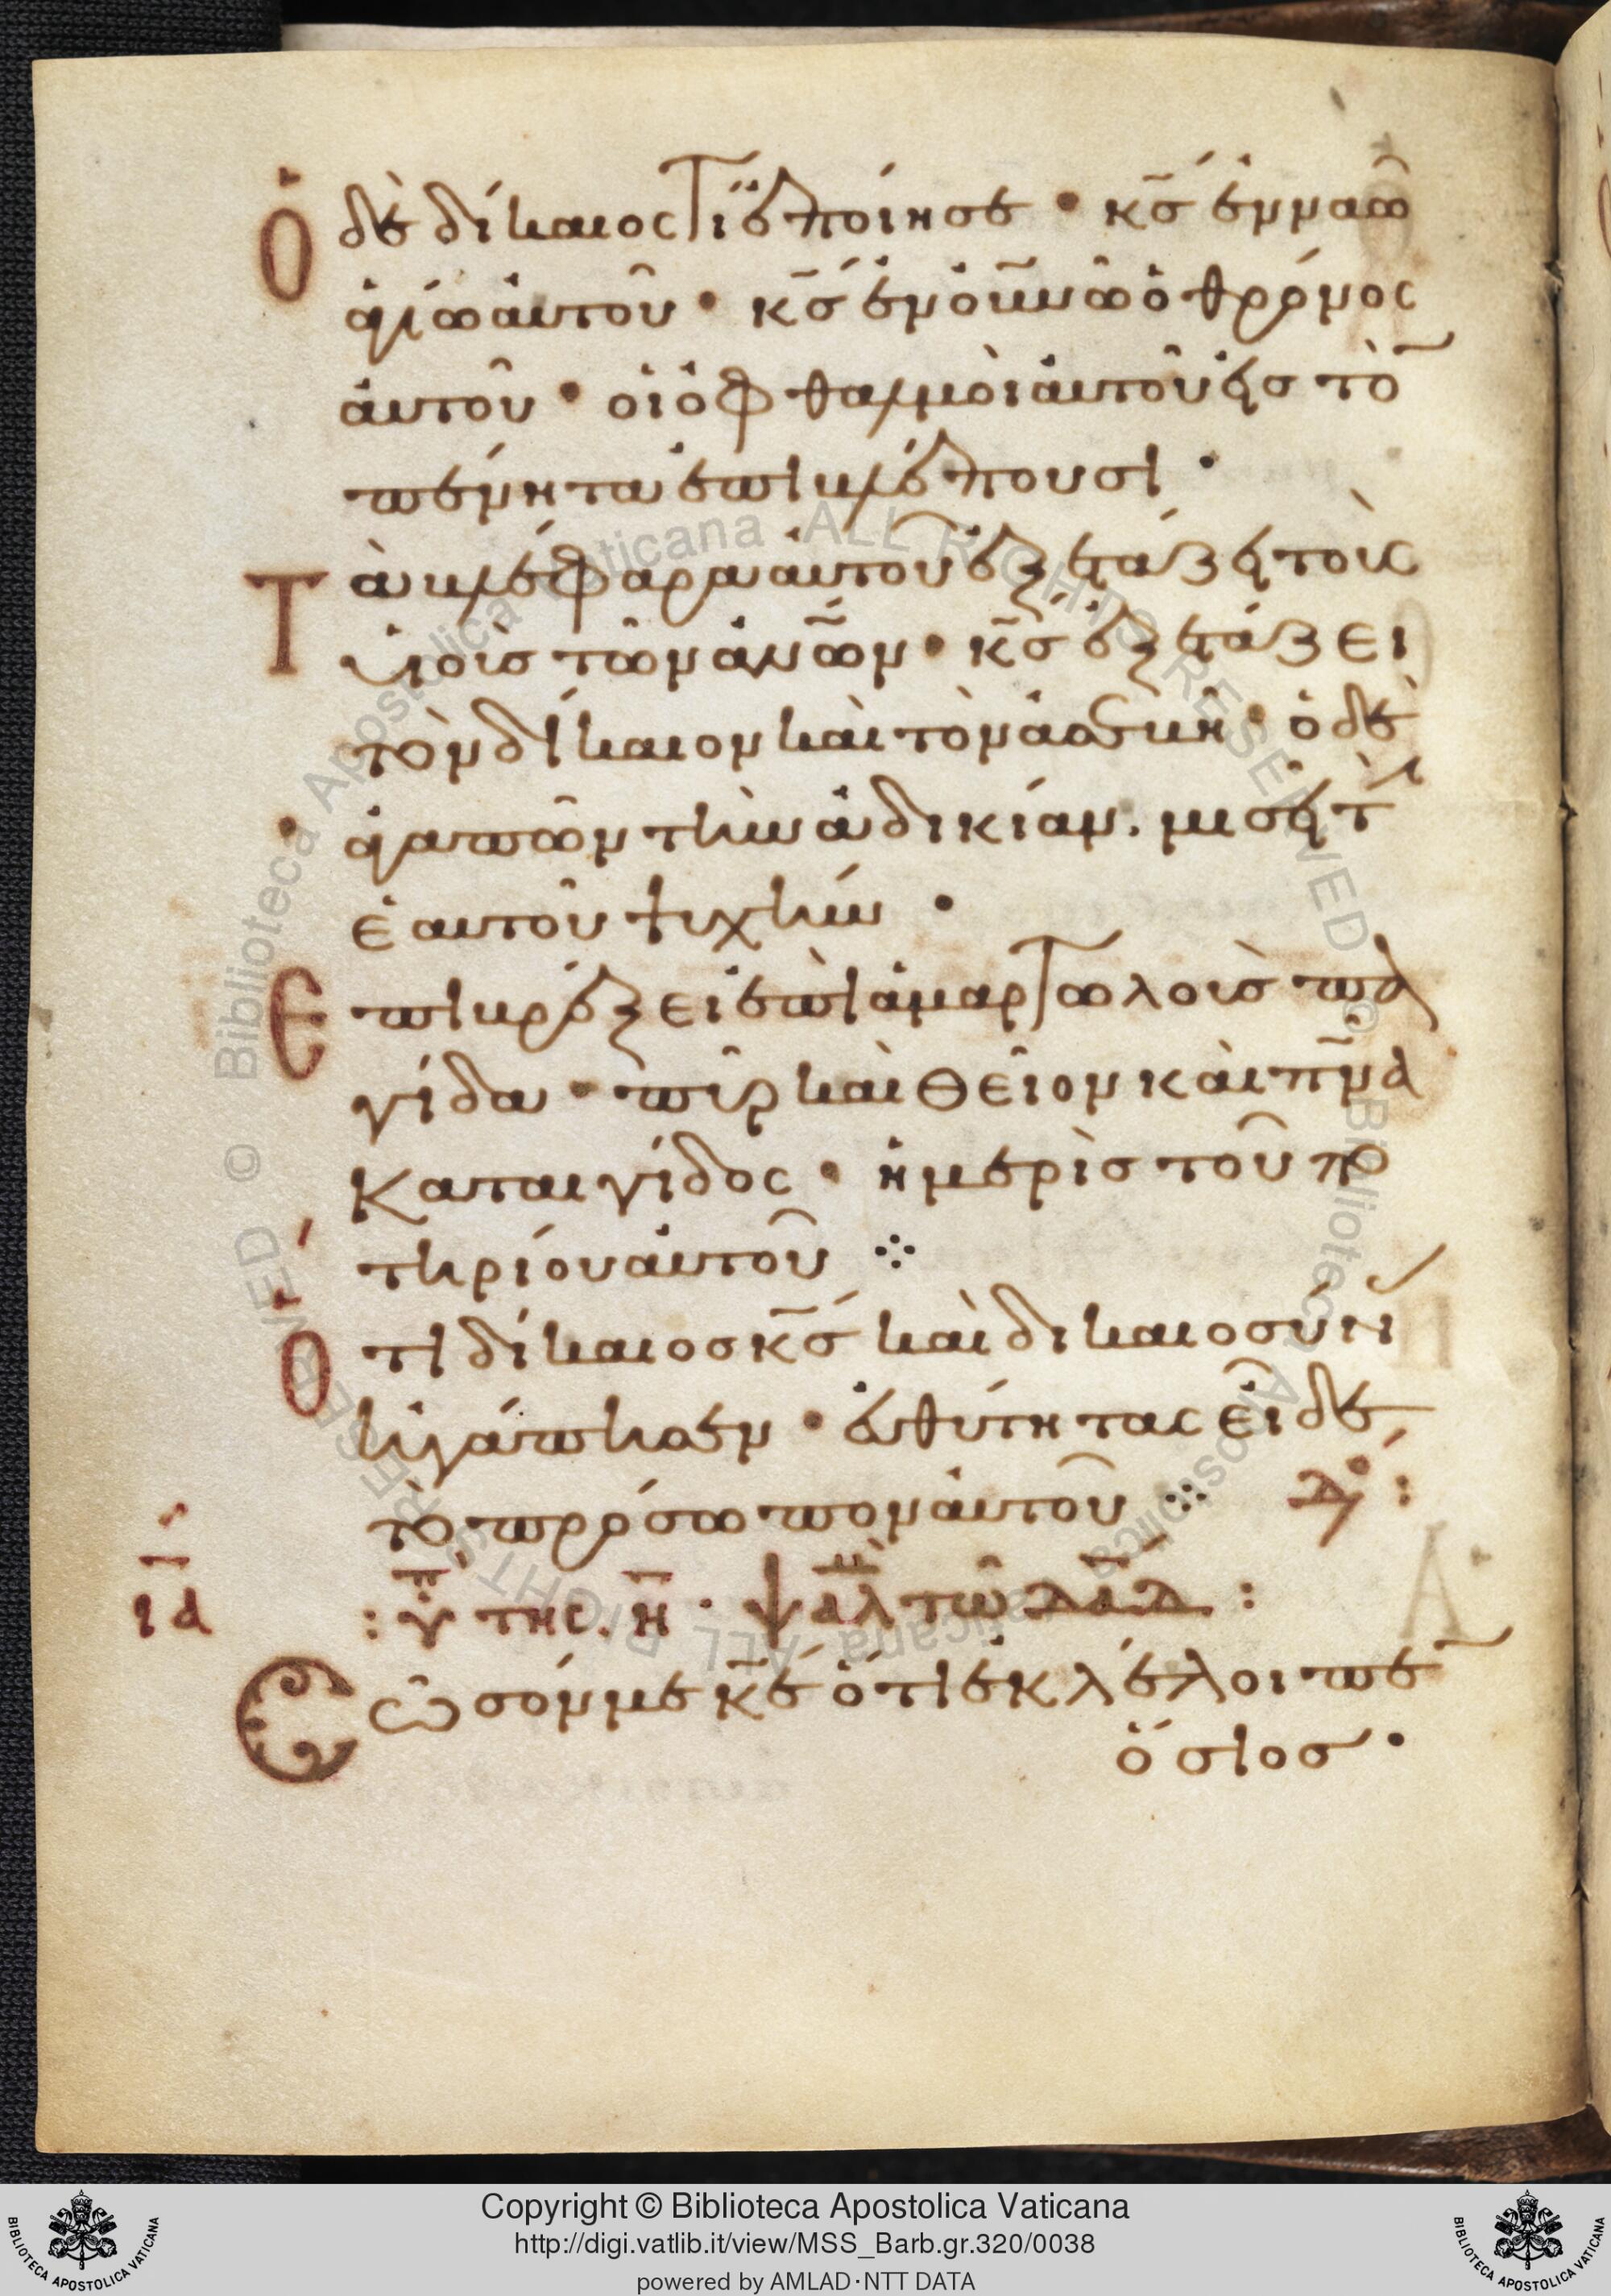 Ὁ δὲ δίκαιος τί ἐποίησε · κ̅ς̅ ἐν ναῶ
ἁγίω ἀυτοῦ · κ̅ς̅ ἐν ο̅υ̅ν̅ω̅ ὁ θρόνος
ἀυτοῦ · οἱ ὀφθαλμοὶ ἀυτοῦ εἰς τὸ̅
πένητα ἐπιβλέπουσι ·
Τὰ βλέφαρα ἀυτοῦ ἐξετάζει τοὺς
υἱοὺς τῶν ἀ̅ν̅ω̅ν̅ · κ̅ς̅ ἐξετάζει
τὸν δίκαιον καὶ τὸν ἀσεβῆ · ὁ δὲ
ἀγαπῶν τὴν ἀδικίαν . μισεῖ τ̀
ἑαυτοῦ ψυχήν ·
Ἐπιβρέξει ἐπὶ ἁμαρτωλοὺς πα
γίδα · πῦρ καὶ θεῖον καὶ π̅ν̅α
καταιγίδος · ἡ μερὶς τοῦ πο
τηρίου ἀυτοῦ ⁘
Ὅτι δίκαιος κ̅ς̅ καὶ δικαιοσύν
ἠγάπησεν · ἐυθύτητας εἶδε
τὸ πρόσωπον ἀυτοῦ ⁘
ι̅α̅ : ὑπ̀ τῆς . η̅ · ψαλμ̀ τῶ δα̅δ̅ :
Σῶσόν με κ̅ε̅ ὅτι ἐκλέλοιπε̅
ὅσιος ·
Copyright © Biblioteca Apostolica Vaticana
http://digi.vatlib.it/view/MSS_Barb.gr.320/0038
powered by AMLAD·NTT DATA
BIBLIOTECA APOSTOLICA VATICANA
BIBLIOTECA APOSTOLICA VATICANA